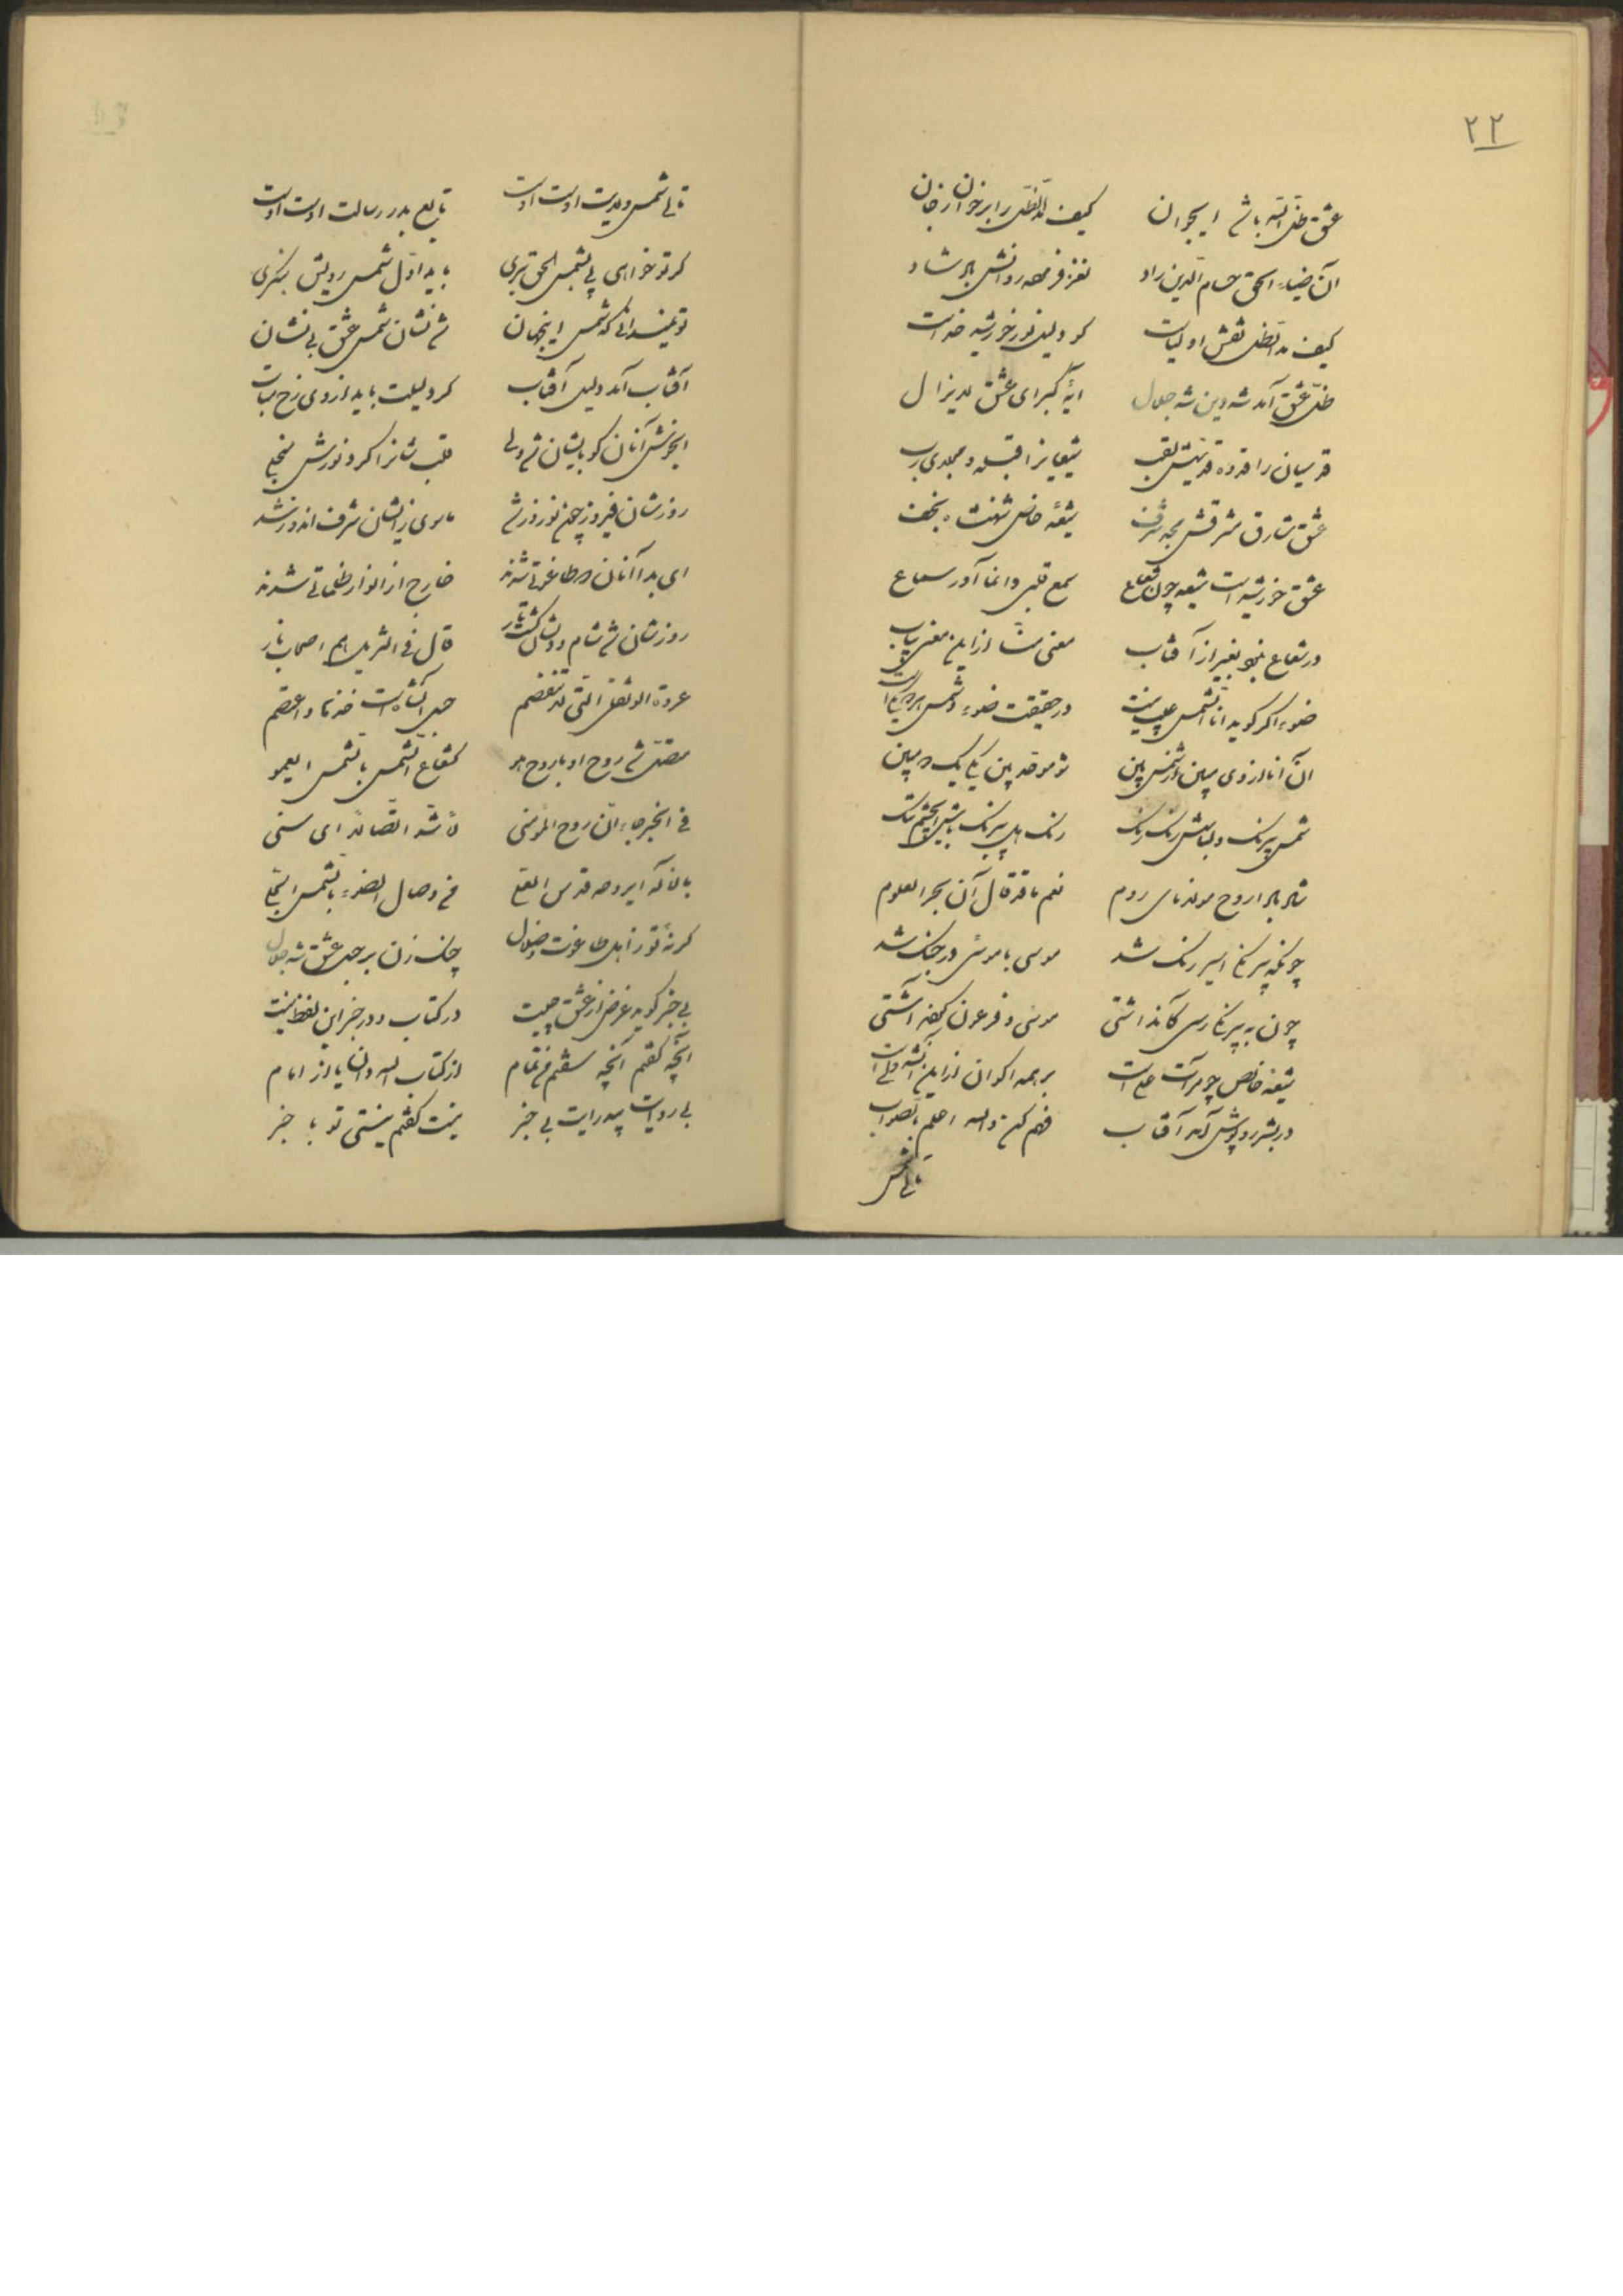 ۲۲
عشق ظل الله باشد ایجوان کیف مد الظل را برخوان
آن ضیاء الحق حسام الدین راد نغز فرموده روانش باد شاد
کیف مد الظل نقش اولیاست کو دلیل نور خورشید خداست
ظل عشق آمد شه دین شه جلال آیه کبرای عشق لایزال
قدسیان را قدوه لقب شیعیانرا قبله و رب
عشق شارق مشرقش شرف شیعه خاص شهنشاه نجف
عشق خورشید است شیعه چون شعاع سمع قلبی وانما آور سماع
در شعاع نبود بغیر از آفتاب معنی شاء از این معنی بیاب
ضوء اگر گوید انا الشمس عیب نیست در حقیقت ضوء و شمس
آن انا از وی مبین از شمس بین شو موحد بین یکی یک مبین
شمس بیرنگ و لباسش رنگ رنگ رنگ
شاد باد ارواح مولانای روم نعم ما قد قال آن بحر العلوم
چونکه بیرنگی اسیر رنگ شد موسی با موسی در جنگ شد
چون به بیرنگی رسی کان داشتی موسی و فرعون کنند آشتی
شیعه خاص چو مرآت علی است بر همه اکوان از این الله ولی است
در بشر روپوش آمد آفتاب فهم کن والله اعلم بالصواب
تالی شمس
تالی شمس ولایت اوست اوست تابع بدر رسالت اوست اوست
گر تو خواهی پی بشمس الحق بری باید اول شمس رویش بنگری
تو نمیدانی که شمس اینجهان شد نشان شمس عشق بی نشان
آفتاب آمد دلیل آفتاب گر دلیلت باید از وی رخ متاب
ایخوش آنان کو بایشان شد ولی قلب شانرا کرد نورش منجلی
روزشان فیروز چون نوروز شد ماسوی زایشان شرف اندوز شد
ای بدا آنان که طاغوتی شدند خارج از انوار ظلماتی شدند
روزشان شد شام و گشت تار قال فی التنزیل هم اصحاب نار
عروة الوثقی التی لا تنفصم حبل الله است خذها واعتصم
متصل شد روح او با روح هو کشعاع الشمس بالشمس
فی الخبر جاء ان روح المؤمنی لأشد اتصالا ای سنی
باله ایروح قدس فی وصال الضوء بالشمس
گر نه تو ز اهل طاغوت و ضلال چنگ زن بر حبل عشق شه جلال
بی خبر گوید غرض از عشق چیست در کتاب و در خبر این لفظ نیست
آنچه گفتم آنچه سفتم تمام از کتاب الله دان یا از امام
بی روایت بی درایت بی خبر نیست گفتم نیستی تو با خبر